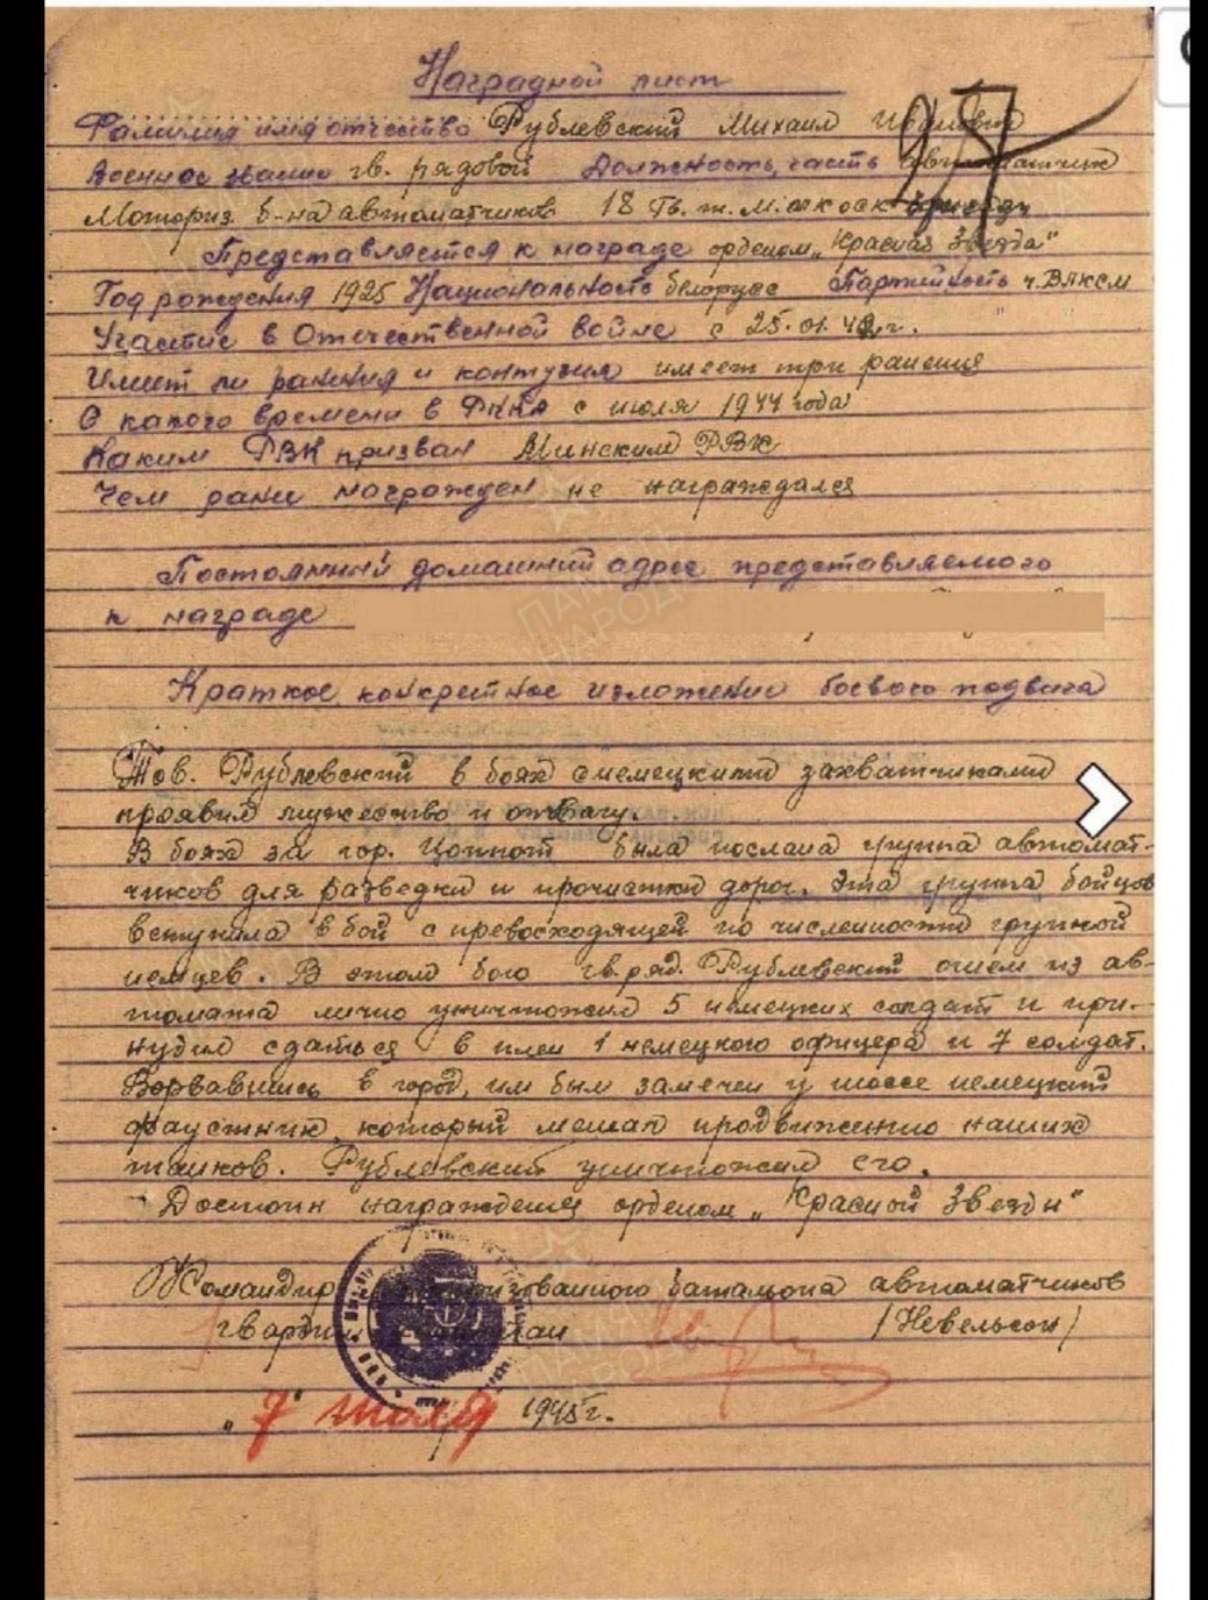 Наградной лист
Фамилия имя отчество Рублевский Михаил Иванович
Военное звание гв. рядовой Должность, часть автоматчик
Моториз. б-на автоматчиков 18 Гв. т. Минской бригады
Представляется к награде орденом „Красная Звезда"
Год рождения 1925 Национальность белорус Партийность ч. ВЛКСМ
Участие в Отечественной войне с 25.01.42 г.
Имеет ли ранения и контузия имеет три ранения
С какого времени в РККА с июля 1944 года
Каким РВК призван Минским РВК
Чем ранее награжден не награждался
Постоянный домашний адрес представляемого
к награде
Краткое конкретное изложение боевого подвига
Тов. Рублевский в боях с немецкими захватчиками
проявил мужество и отвагу.
В боях за гор. Цоппот была послана группа автомат-
чиков для разведки и прочистки дорог. Эта группа бойцов
вступила в бой с превосходящей по численности группой
немцев. В этом бою гв. ряд. Рублевский огнем из ав-
томата лично уничтожил 5 немецких солдат и при-
нудил сдаться в плен 1 немецкого офицера и 7 солдат.
Ворвавшись в город, им был замечен у шоссе немецкий
фаустник, который мешал продвижению наших
танков. Рублевский уничтожил его.
Достоин награждения орденом „Красной Звезды"
Командир моторизованного батальона автоматчиков
гвардии капитан (Невельсон)
„7" мая 1945 г.
ПАМЯТЬ
НАРОДА